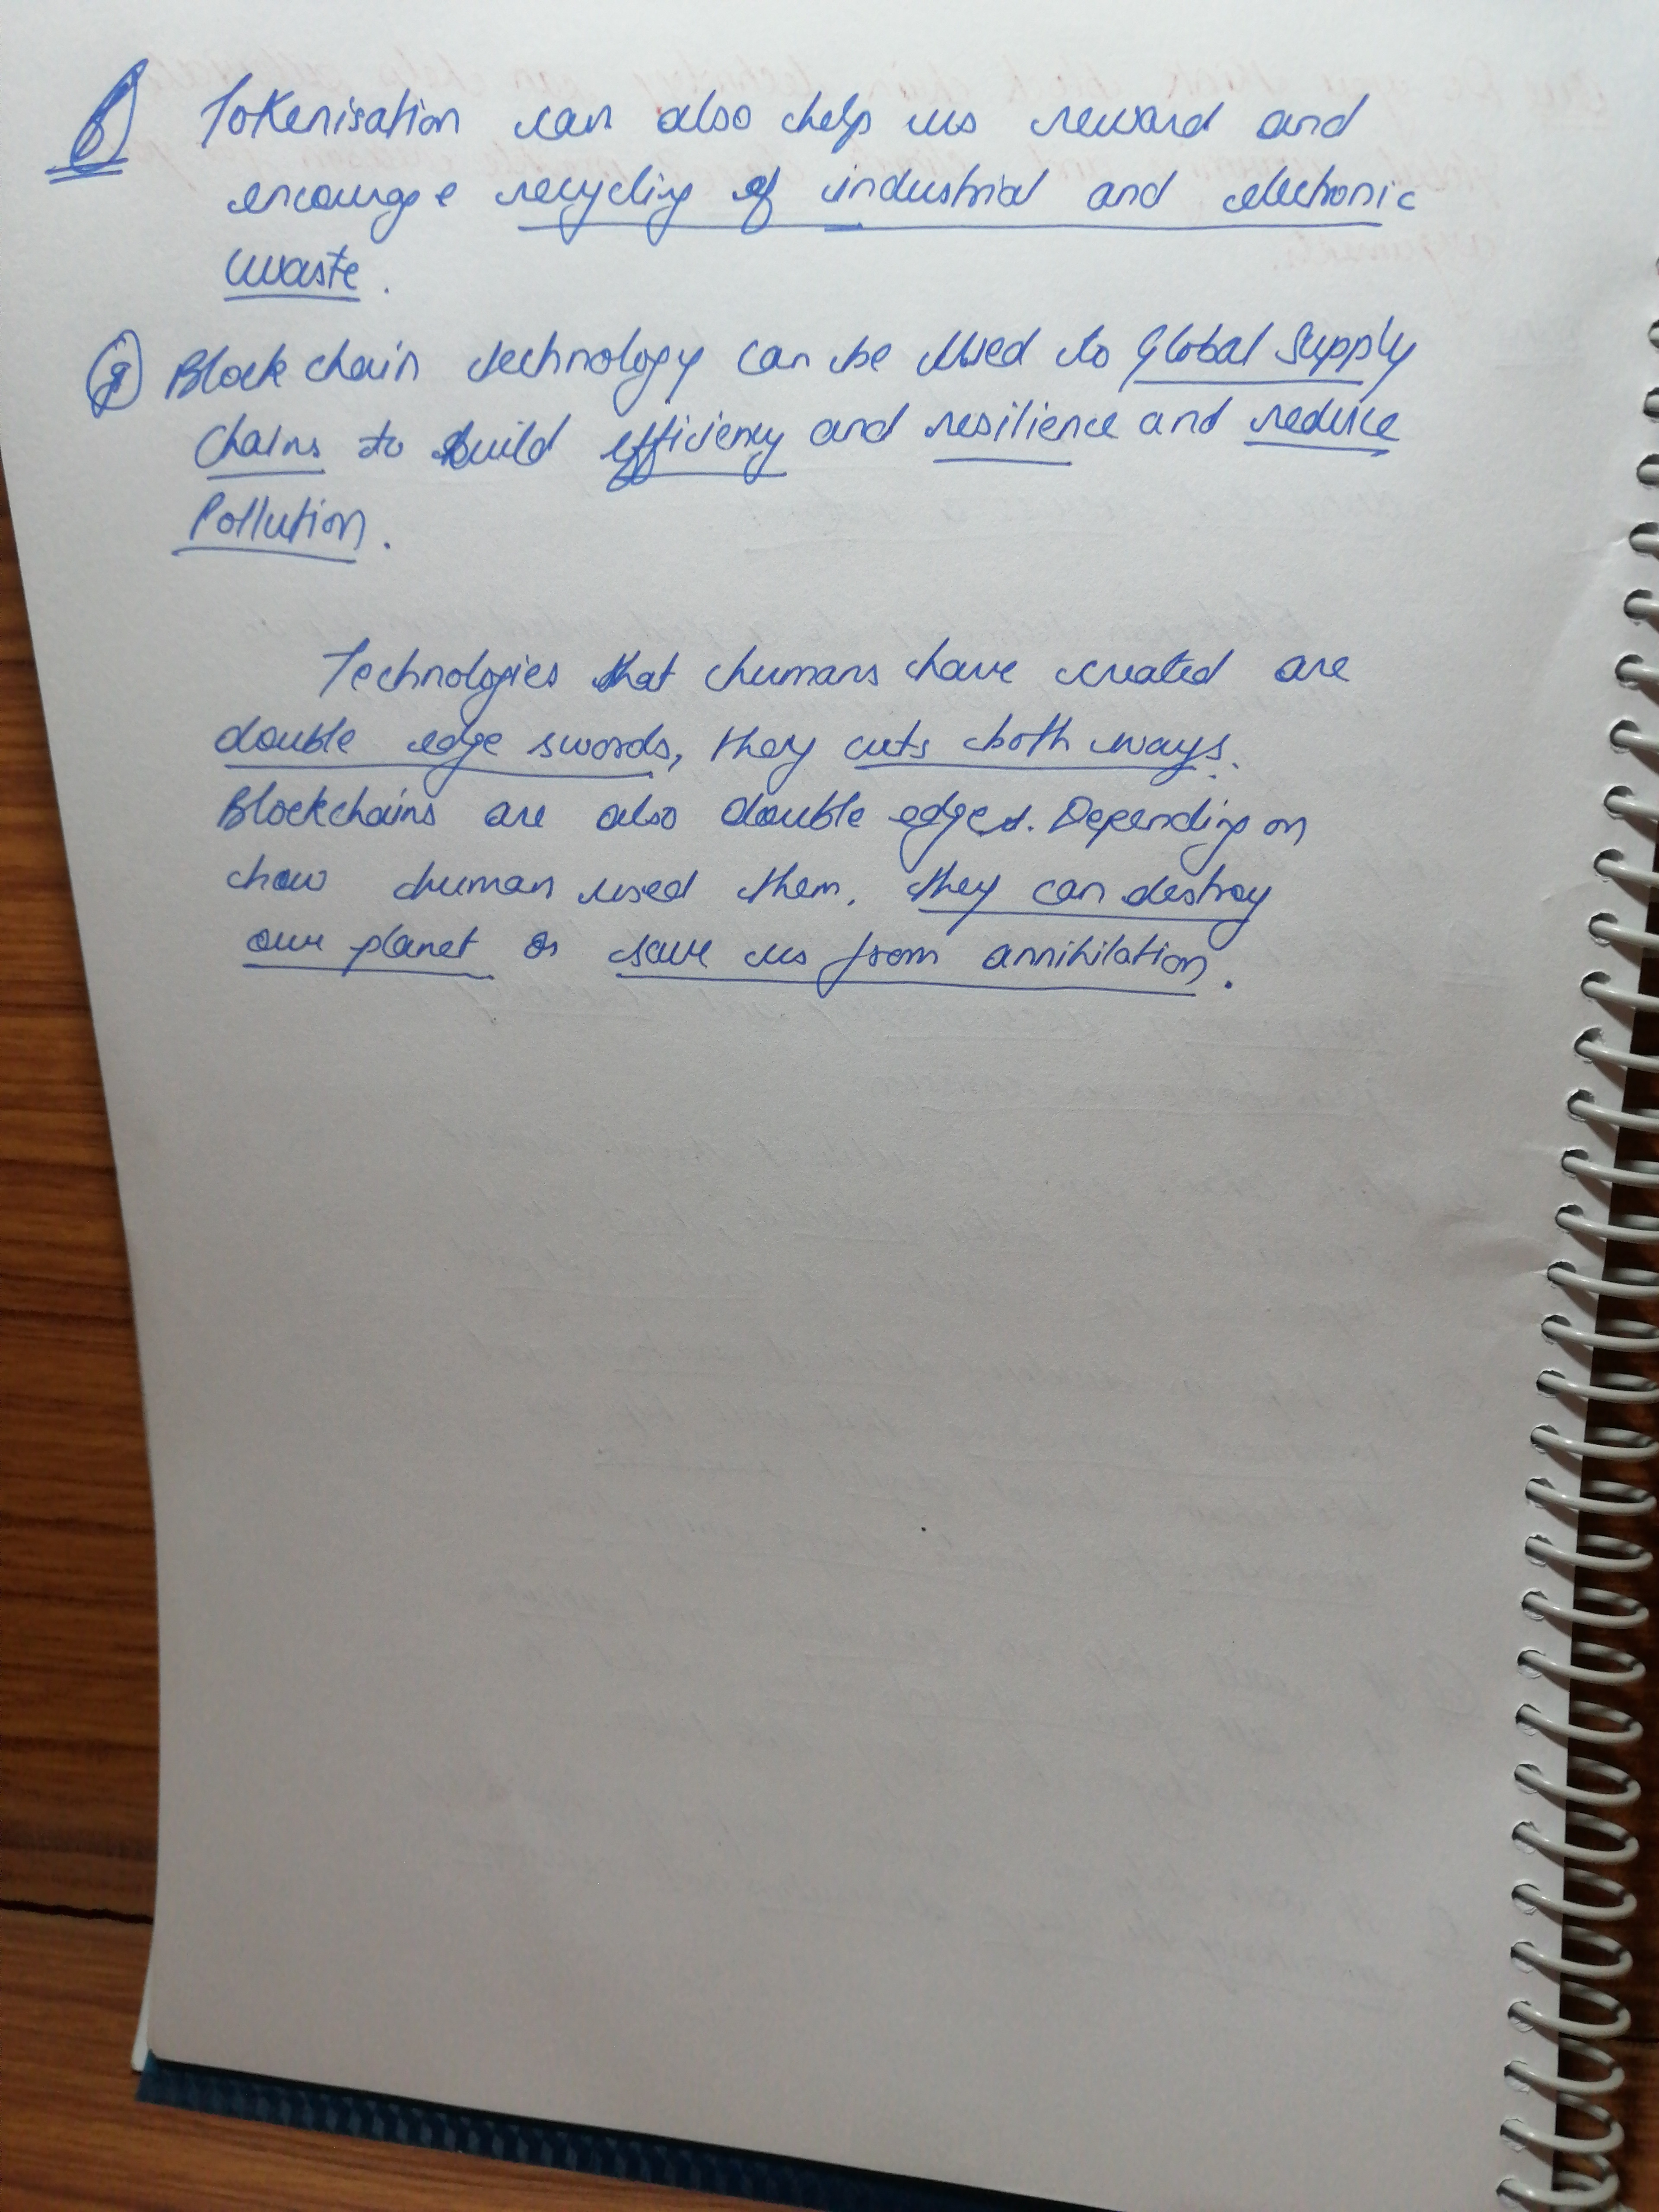 Tokenisation can also help us reward and
encourage recycling of industrial and electronic
waste.
Blockchain technology can be used to Global Supply
Chains to build efficiency and resilience and reduce
Pollution.
Technologies that humans have created are
double edge swords, they cuts both ways.
Blockchains are also double edges. Depending on
how human used them, they can destroy
our planet or save us from annihilation.